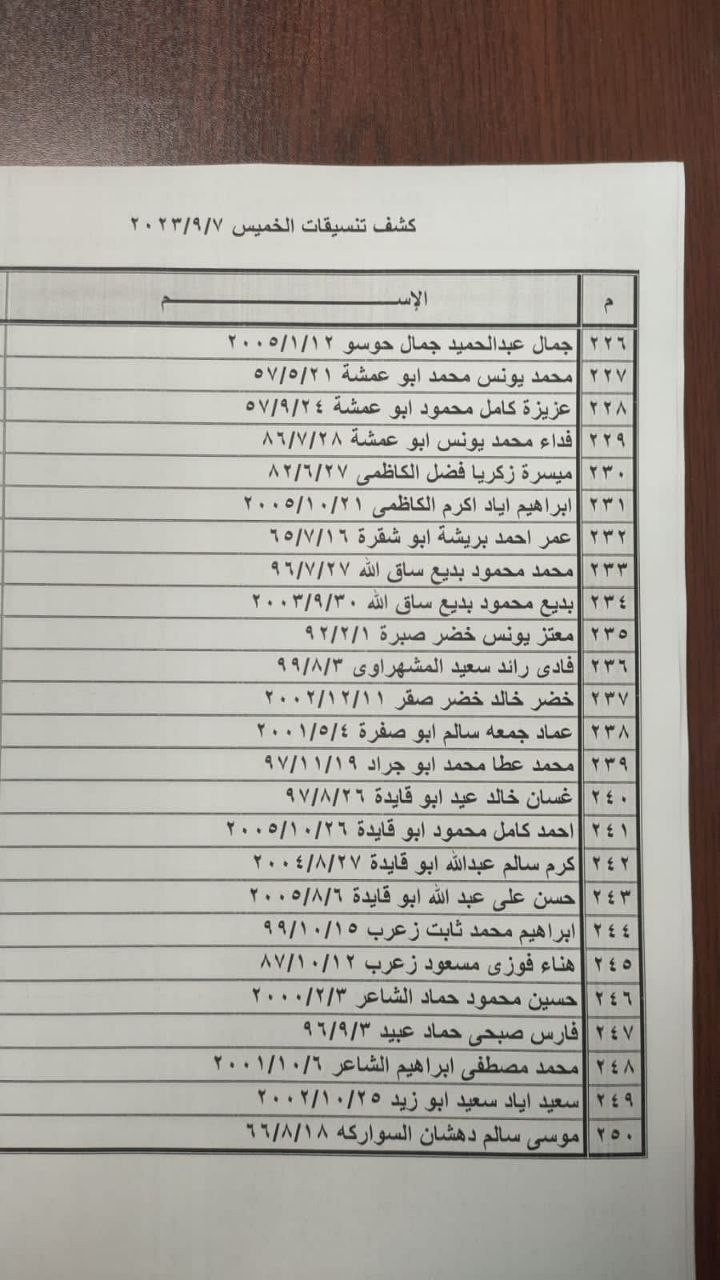 كشف تنسيقات الخميس ٢٠٢٣/٩/٧
م الإســـــــــــــم
٢٢٦ جمال عبدالحميد جمال حوسو ٢٠٠٥/١/١٢
٢٢٧ محمد يونس محمد ابو عمشة ٥٧/٥/٢١
٢٢٨ عزيزة كامل محمود ابو عمشة ٥٧/٩/٢٤
٢٢٩ فداء محمد يونس ابو عمشة ٨٦/٧/٢٨
٢٣٠ ميسرة زكريا فضل الكاظمى ٨٢/٦/٢٧
٢٣١ ابراهيم اياد اكرم الكاظمى ٢٠٠٥/١٠/٢١
٢٣٢ عمر احمد بريشة ابو شقرة ٦٥/٧/١٦
٢٣٣ محمد محمود بديع ساق الله ٩٦/٧/٢٧
٢٣٤ بديع محمود بديع ساق الله ٢٠٠٣/٩/٣٠
٢٣٥ معتز يونس خضر صبرة ٩٢/٢/١
٢٣٦ فادى رائد سعيد المشهراوى ٩٩/٨/٣
٢٣٧ خضر خالد خضر صقر ٢٠٠٢/١٢/١١
٢٣٨ عماد جمعه سالم ابو صفرة ٢٠٠١/٥/٤
٢٣٩ محمد عطا محمد ابو جراد ٩٧/١١/١٩
٢٤٠ غسان خالد عيد ابو قايدة ٩٧/٨/٢٦
٢٤١ احمد كامل محمود ابو قايدة ٢٠٠٥/١٠/٢٦
٢٤٢ كرم سالم عبدالله ابو قايدة ٢٠٠٤/٨/٢٧
٢٤٣ حسن على عبد الله ابو قايدة ٢٠٠٥/٨/٦
٢٤٤ ابراهيم محمد ثابت زعرب ٩٩/١٠/١٥
٢٤٥ هناء فوزى مسعود زعرب ٨٧/١٠/١٢
٢٤٦ حسين محمود حماد الشاعر ٢٠٠٠/٢/٣
٢٤٧ فارس صبحى حماد عبيد ٩٦/٩/٣
٢٤٨ محمد مصطفى ابراهيم الشاعر ٢٠٠١/١٠/٦
٢٤٩ سعيد اياد سعيد ابو زيد ٢٠٠٢/١٠/٢٥
٢٥٠ موسى سالم دهشان السواركه ٦٦/٨/١٨